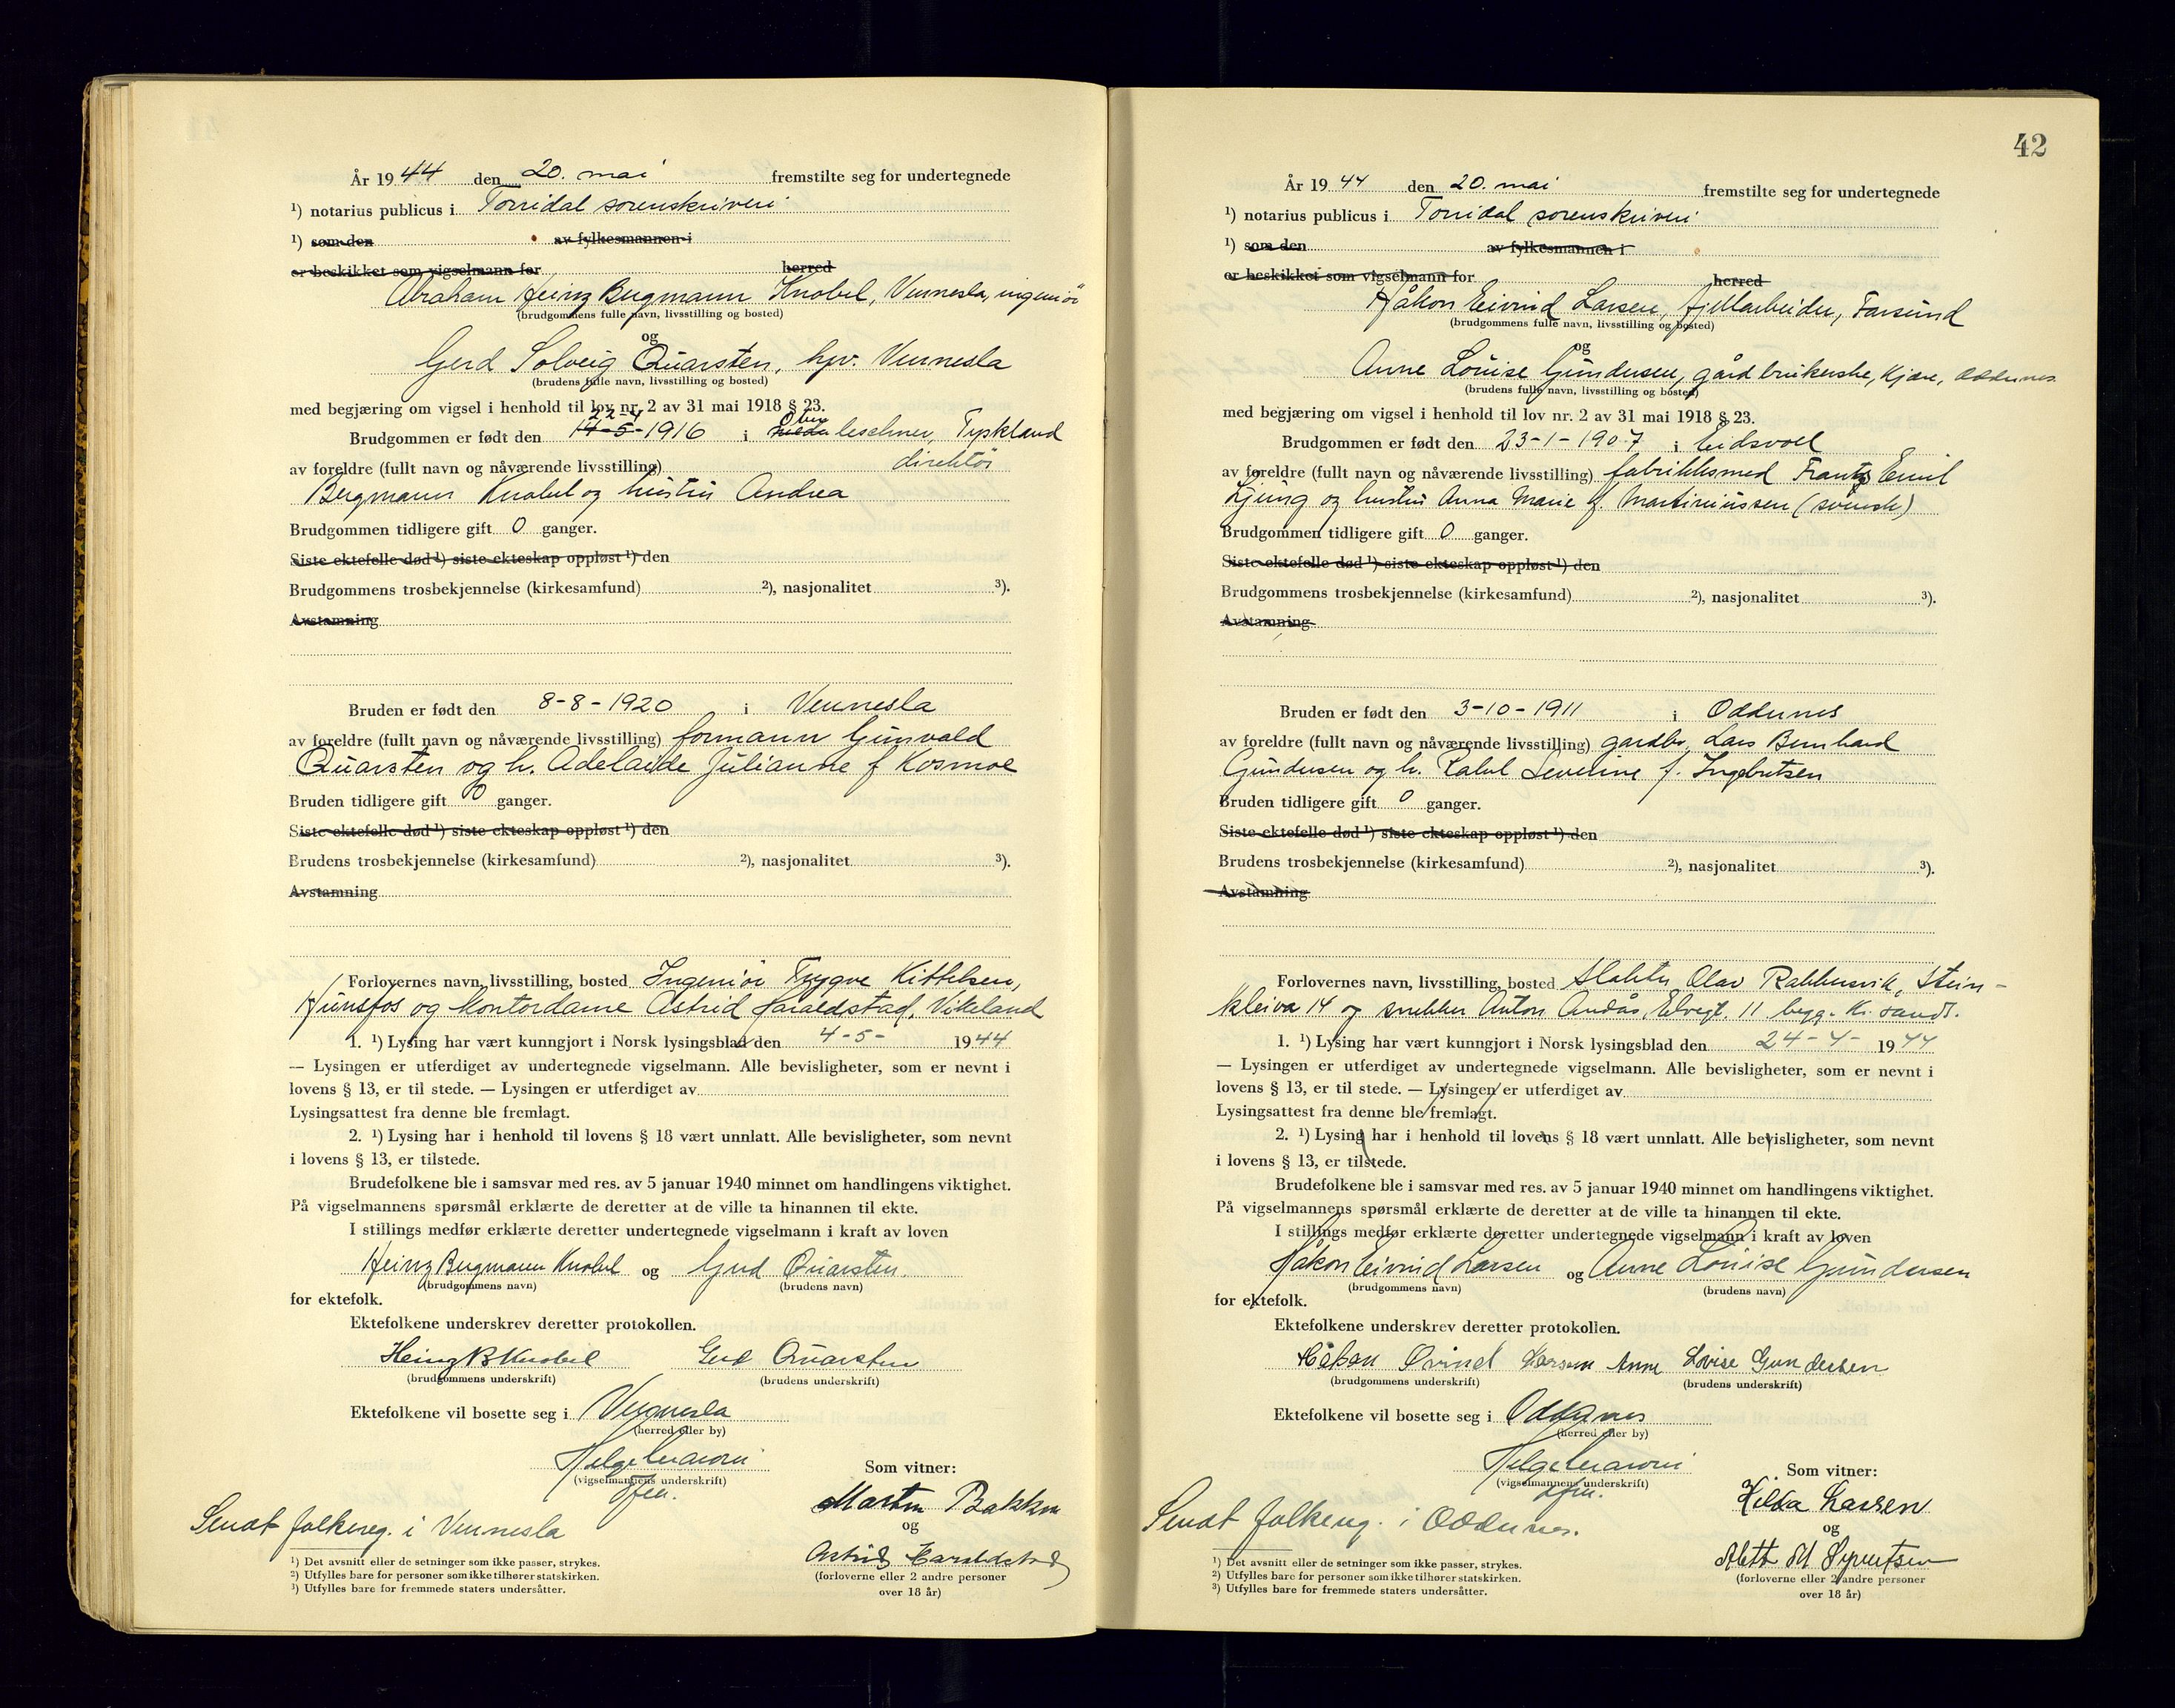 År 1944 den 20. mai fremstilte seg for undertegnede
¹) notarius publicus i Torridal sorenskriveri
¹) som den av fylkesmannen i
er beskikket som vigselmann for herred
Abraham Heinz Bergmann Knobel, Vennesla, ingeniør
(brudgommens fulle navn, livsstilling og bosted)
og
Gerd Solveig Quarsten, hpr. Vennesla
(brudens fulle navn, livsstilling og bosted)
med begjæring om vigsel i henhold til lov nr. 2 av 31 mai 1918 § 23.
Brudgommen er født den 1916 i Ober leschner, Tyskland
av foreldre (fullt navn og nåværende livsstilling) direktør
Bergmann Knobel og hustru Andrea
Brudgommen tidligere gift 0 ganger.
Siste ektefelle død ¹) siste ekteskap oppløst ¹) den
Brudgommens trosbekjennelse (kirkesamfund) ²), nasjonalitet ³).
Avstamning
Bruden er født den 8-8-1920 i Vennesla
av foreldre (fullt navn og nåværende livsstilling) formann Gunvald
Quarsten og h. Adelaide Julianne f Kosmoe
Bruden tidligere gift 0 ganger.
Siste ektefelle død ¹) siste ekteskap oppløst ¹) den
Brudens trosbekjennelse (kirkesamfund) ²), nasjonalitet ³).
Avstamning
Forlovernes navn, livsstilling, bosted Ingeniør Trygve Kittelsen,
Hunsfos og kontordame Astrid Haraldstad, Vikeland
1. ¹) Lysing har vært kunngjort i Norsk lysingsblad den 4-5- 1944
— Lysingen er utferdiget av undertegnede vigselmann. Alle bevisligheter, som er nevnt i
lovens § 13, er til stede. — Lysingen er utferdiget av
Lysingsattest fra denne ble fremlagt.
2. ¹) Lysing har i henhold til lovens § 18 vært unnlatt. Alle bevisligheter, som nevnt
i lovens § 13, er tilstede.
Brudefolkene ble i samsvar med res. av 5 januar 1940 minnet om handlingens viktighet.
På vigselmannens spørsmål erklærte de deretter at de ville ta hinannen til ekte.
I stillings medfør erklærte deretter undertegnede vigselmann i kraft av loven
Heinz Bergmann Knobel og Gerd Quarsten.
(brudgommens navn) (brudens navn)
for ektefolk.
Ektefolkene underskrev deretter protokollen.
Heinz B Knobel Gerd Quarsten
(brudgommens underskrift) (brudens underskrift)
Ektefolkene vil bosette seg i Vennesla
(herred eller by)
(vigselmannens underskrift)
Som vitner:
Marten Bakken
og
Astrid Haraldstad
(forloverne eller 2 andre personer
over 18 år)
Sendt folkereg. i Vennesla
¹) Det avsnitt eller de setninger som ikke passer, strykes.
²) Utfylles bare for personer som ikke tilhører statskirken.
³) Utfylles bare for fremmede staters undersåtter.
42
År 1944 den 20. mai fremstilte seg for undertegnede
¹) notarius publicus i Torridal sorenskriveri
¹) som den av fylkesmannen i
er beskikket som vigselmann for herred
Håkon Eivind Larsen, fjellarbeider, Farsund
(brudgommens fulle navn, livsstilling og bosted)
og
Anne Louise Gundersen, gårdbrukerske, Kjær, Oddernes.
(brudens fulle navn, livsstilling og bosted)
med begjæring om vigsel i henhold til lov nr. 2 av 31 mai 1918 § 23.
Brudgommen er født den 23-1-1907 i Eidsvoll
av foreldre (fullt navn og nåværende livsstilling) fabrikksmed Frantz Emil
Ljung og hustru Anna Marie f. Martiniussen (svensk)
Brudgommen tidligere gift 0 ganger.
Siste ektefelle død ¹) siste ekteskap oppløst ¹) den
Brudgommens trosbekjennelse (kirkesamfund) ²), nasjonalitet ³).
Avstamning
Bruden er født den 3-10-1911 i Oddernes
av foreldre (fullt navn og nåværende livsstilling) gardbr. Lars Bernhard
Gundersen og h. Rakel Severine f. Ingebretsen
Bruden tidligere gift 0 ganger.
Siste ektefelle død ¹) siste ekteskap oppløst ¹) den
Brudens trosbekjennelse (kirkesamfund) ²), nasjonalitet ³).
Avstamning
Forlovernes navn, livsstilling, bosted slakter Olav Rabbersvik, Stein-
kleiva 14 og snekker Anton Andås, Elvegt. 11 begge Kr.sand S.
1. ¹) Lysing har vært kunngjort i Norsk lysingsblad den 24-4- 1944
— Lysingen er utferdiget av undertegnede vigselmann. Alle bevisligheter, som er nevnt i
lovens § 13, er til stede. — Lysingen er utferdiget av
Lysingsattest fra denne ble fremlagt.
2. ¹) Lysing har i henhold til lovens § 18 vært unnlatt. Alle bevisligheter, som nevnt
i lovens § 13, er tilstede.
Brudefolkene ble i samsvar med res. av 5 januar 1940 minnet om handlingens viktighet.
På vigselmannens spørsmål erklærte de deretter at de ville ta hinannen til ekte.
I stillings medfør erklærte deretter undertegnede vigselmann i kraft av loven
Håkon Eivind Larsen og Anne Louise Gundersen
(brudgommens navn) (brudens navn)
for ektefolk.
Ektefolkene underskrev deretter protokollen.
Håkon Øvind Larsen Anne Lovise Gundersen
(brudgommens underskrift) (brudens underskrift)
Ektefolkene vil bosette seg i Oddernes
(herred eller by)
(vigselmannens underskrift)
Som vitner:
Hilda Larsen
og
(forloverne eller 2 andre personer
over 18 år)
Sendt folkereg. i Oddernes.
¹) Det avsnitt eller de setninger som ikke passer, strykes.
²) Utfylles bare for personer som ikke tilhører statskirken.
³) Utfylles bare for fremmede staters undersåtter.